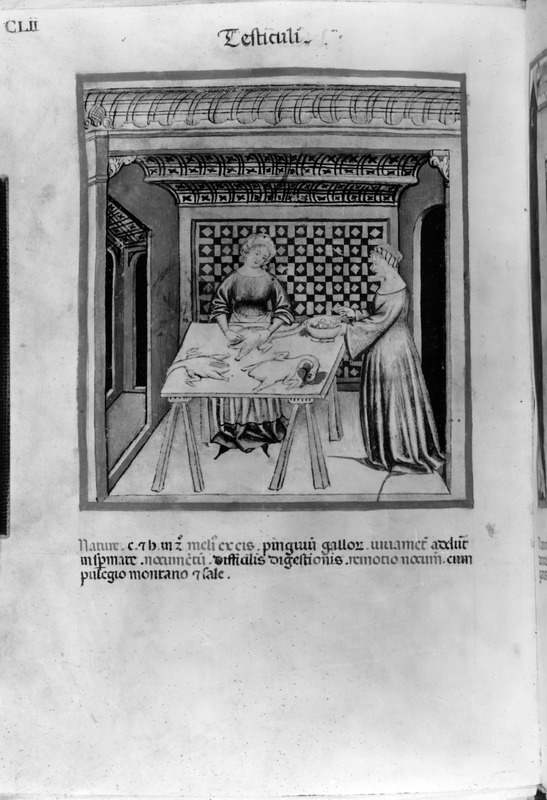 CLII
Testiculi.
Nature. c. ⁊ h in 2̃. melĩ ex eis. pinguiũ gallor̄. iuuamẽt̃ addũt
in spmate. nocumẽtũ. difficilis digestiõis. remotio nocum̃. cum
pulegio montano ⁊ sale.